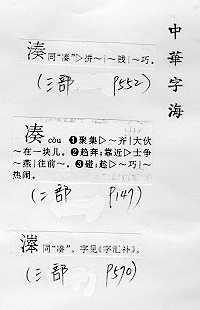 中華字海
湊 同“凑”▷拼～|～钱|～巧。
(氵部 P552)
凑 còu ❶聚集▷～齐|大伙
～在一块儿。❷趋奔;靠近▷士争
～燕|往前～。❸碰;趁▷～巧|～
热闹。
(冫部 P147)
同“凑”。字见《字汇补》。
(氵部 P570)